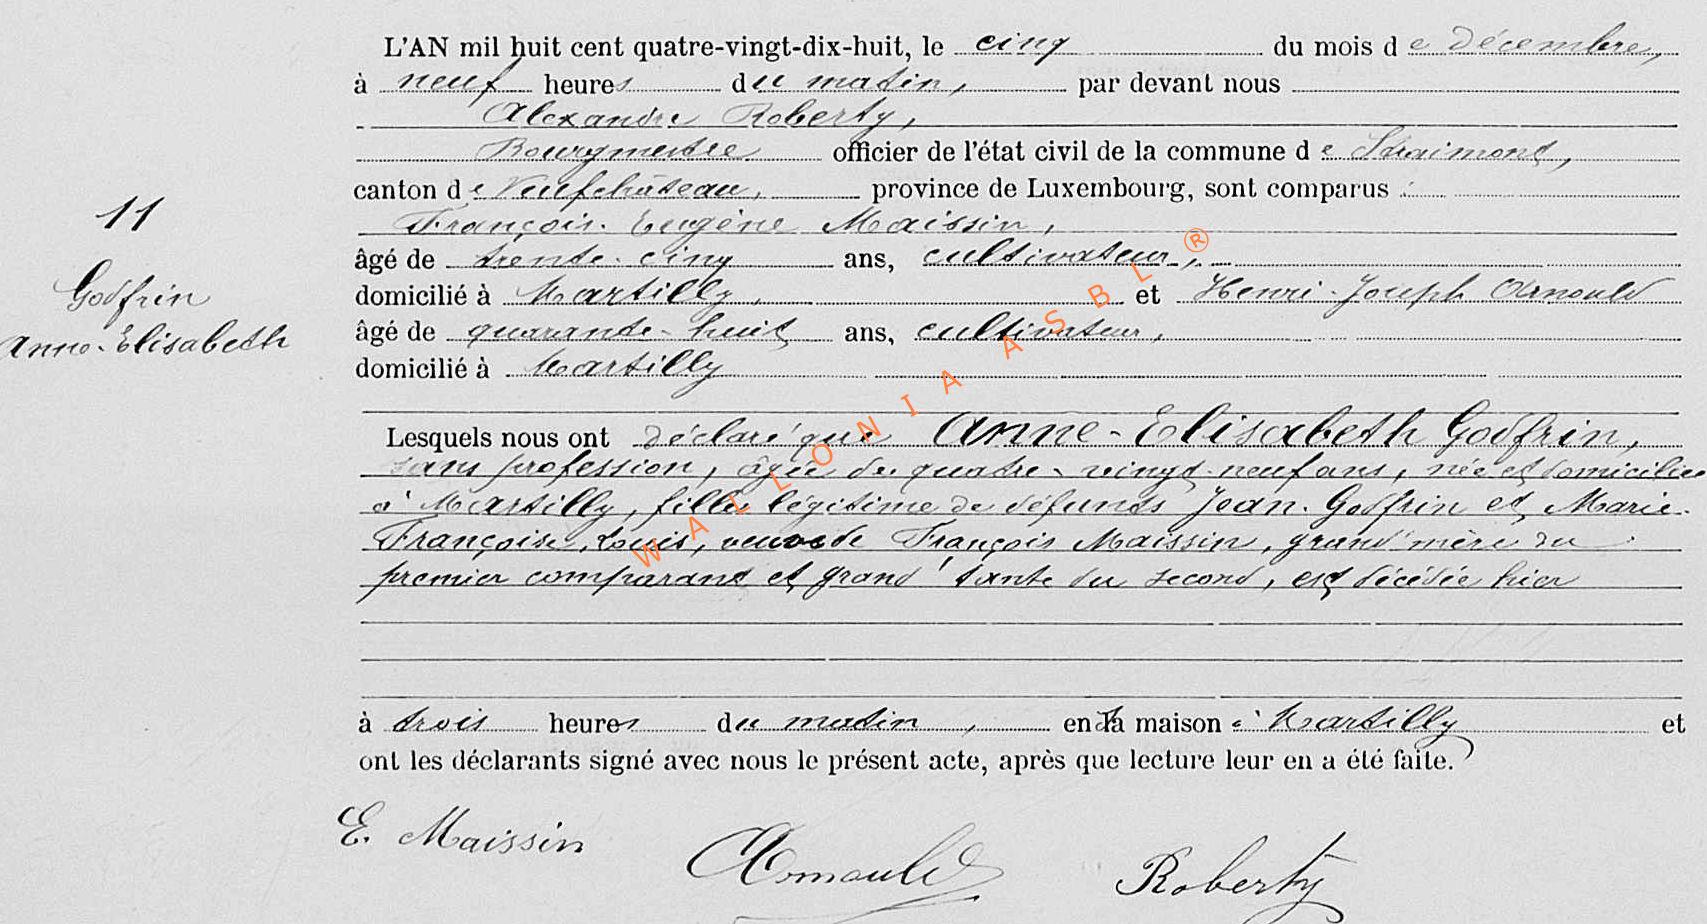 L'AN mil huit cent quatre-vingt-dix-huit, le cinq du mois de Décembre,
à neuf heures du matin, par devant nous
Alexandre Roberty,
Bourgmestre officier de l'état civil de la commune de Straimont,
canton de Neufchâteau, province de Luxembourg, sont comparus :
François-Eugène Maissin,
âgé de trente-cinq ans, cultivateur,
domicilié à Martilly, et Henri-Joseph Arnould
âgé de quarante-huit ans, cultivateur,
domicilié à Martilly
11
Godfrin
Anne-Elisabeth
Lesquels nous ont déclaré que Anne-Elisabeth Godfrin,
sans profession, âgée de quatre-vingt-neuf ans, née et domiciliée
à Martilly, fille légitime de défunts Jean Godfrin et Marie-
Françoise Louis, veuve de François Maissin, grand'mère du
premier comparant et grand'tante du second, est décédée hier
à trois heures du matin, en sa maison à Martilly et
ont les déclarants signé avec nous le présent acte, après que lecture leur en a été faite.
E. Maissin Arnould Roberty
WALLONIA ASBL ®